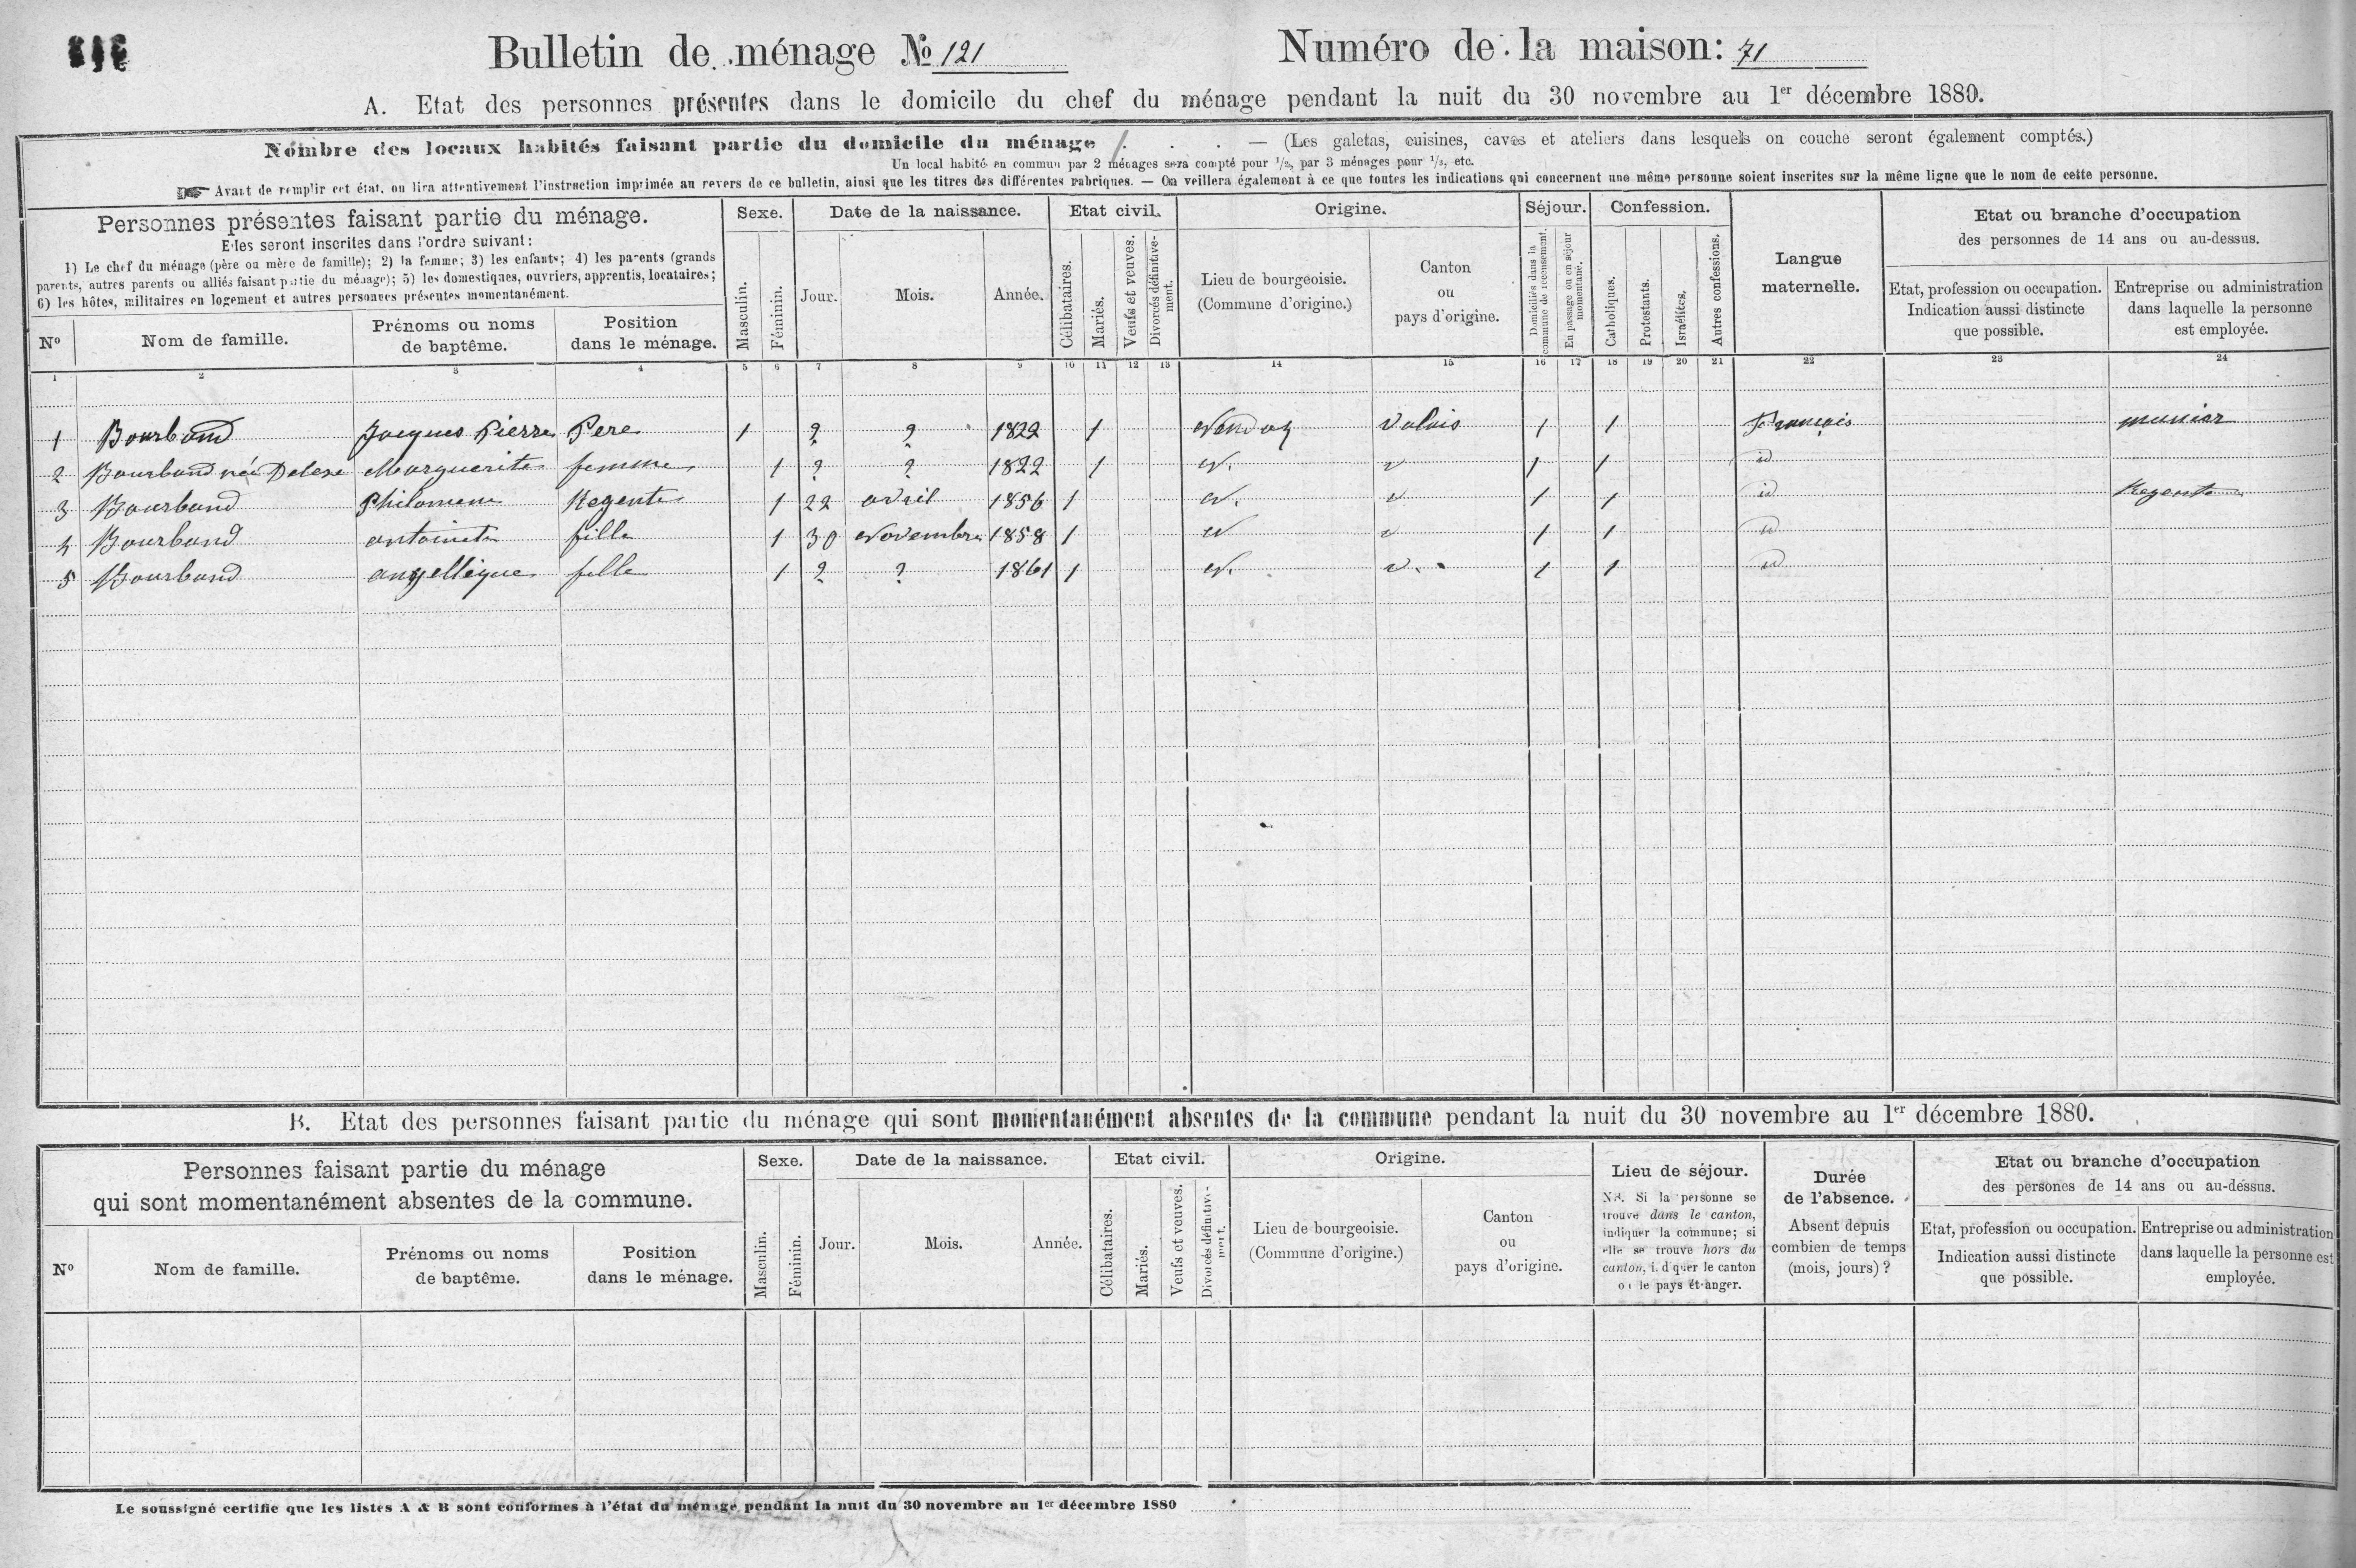 Bulletin de ménage № 121
Numéro de la maison: 71
A. Etat des personnes présentes dans le domicile du chef du ménage pendant la nuit du 30 novembre au 1er décembre 1880.
Nombre des locaux habités faisant partie du domicile du ménage 1 . . . — (Les galetas, cuisines, caves et ateliers dans lesquels on couche seront également comptés.)
Un local habité en commun par 2 ménages sera compté pour 1/2, par 3 ménages pour 1/3, etc.
☞ Avant de remplir cet état, on lira attentivement l'instruction imprimée au revers de ce bulletin, ainsi que les titres des différentes rubriques. — On veillera également à ce que toutes les indications qui concernent une même personne soient inscrites sur la même ligne que le nom de cette personne.
Personnes présentes faisant partie du ménage.
Elles seront inscrites dans l'ordre suivant:
1) Le chef du ménage (père ou mère de famille); 2) la femme; 3) les enfants; 4) les parents (grands
parents, autres parents ou alliés faisant partie du ménage); 5) les domestiques, ouvriers, apprentis, locataires;
6) les hôtes, militaires en logement et autres personnes présentes momentanément.
Nº
Nom de famille.
Prénoms ou noms
de baptême.
Position
dans le ménage.
Sexe.
Masculin.
Féminin.
Date de la naissance.
Jour.
Mois.
Année.
Etat civil.
Célibataires.
Mariés.
Veufs et veuves.
Divorcés définitive-
ment.
Origine.
Lieu de bourgeoisie.
(Commune d'origine.)
Canton
ou
pays d'origine.
Séjour.
Domiciliés dans la
commune de recensement.
En passage ou en séjour
momentané.
Confession.
Catholiques.
Protestants.
Israélites.
Autres confessions.
Langue
maternelle.
Etat ou branche d'occupation
des personnes de 14 ans ou au-dessus.
Etat, profession ou occupation.
Indication aussi distincte
que possible.
Entreprise ou administration
dans laquelle la personne
est employée.
1 2 3 4 5 6 7 8 9 10 11 12 13 14 15 16 17 18 19 20 21 22 23 24
1 Bourband Jacques Pierre Pere 1 ? ? 1822 1 Nendaz Valais 1 1 Francais munier
2 Bourband née Delese Marguerite femme 1 ? ? 1822 1 N. V 1 1 id
3 Bourband Philomene Regente 1 22 avril 1856 1 N. V 1 1 id Regente
4 Bourband antoinete fille 1 30 Novembre 1858 1 N V 1 1 id
5 Bourband angellique fille 1 ? ? 1861 1 N. V. 1 1 id
B. Etat des personnes faisant partie du ménage qui sont momentanément absentes de la commune pendant la nuit du 30 novembre au 1er décembre 1880.
Personnes faisant partie du ménage
qui sont momentanément absentes de la commune.
Nº
Nom de famille.
Prénoms ou noms
de baptême.
Position
dans le ménage.
Sexe.
Masculin.
Féminin.
Date de la naissance.
Jour.
Mois.
Année.
Etat civil.
Célibataires.
Mariés.
Veufs et veuves.
Divorcés définitive-
ment.
Origine.
Lieu de bourgeoisie.
(Commune d'origine.)
Canton
ou
pays d'origine.
Lieu de séjour.
NB. Si la personne se
trouve dans le canton,
indiquer la commune; si
elle se trouve hors du
canton, indiquer le canton
ou le pays étranger.
Durée
de l'absence.
Absent depuis
combien de temps
(mois, jours)?
Etat ou branche d'occupation
des persones de 14 ans ou au-dessus.
Etat, profession ou occupation.
Indication aussi distincte
que possible.
Entreprise ou administration
dans laquelle la personne est
employée.
Le soussigné certifie que les listes A & B sont conformes à l'état du ménage pendant la nuit du 30 novembre au 1er décembre 1880